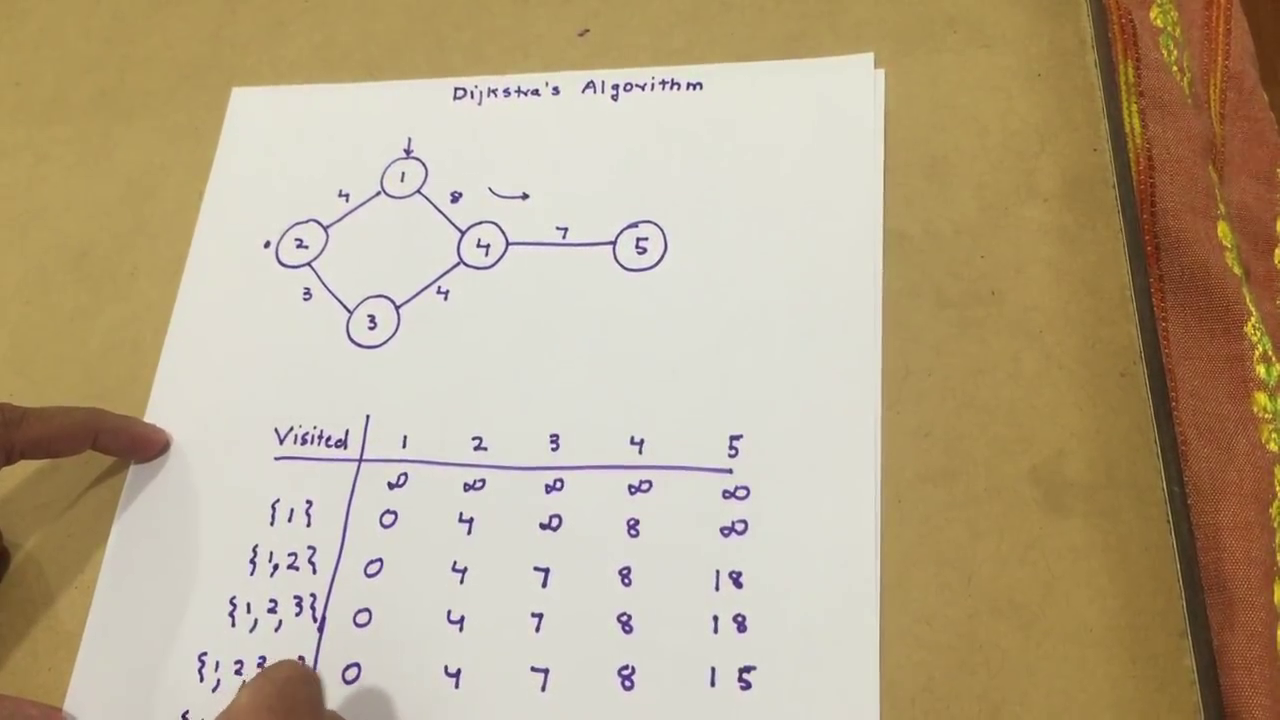 Dijkstra's Algorithm
1
4 8
2 4 7 5
3 4
3
Visited 1 2 3 4 5
∞ ∞ ∞ ∞ ∞
{1} 0 4 ∞ 8 ∞
{1,2} 0 4 7 8 18
{1,2,3} 0 4 7 8 18
{1,2 0 4 7 8 15